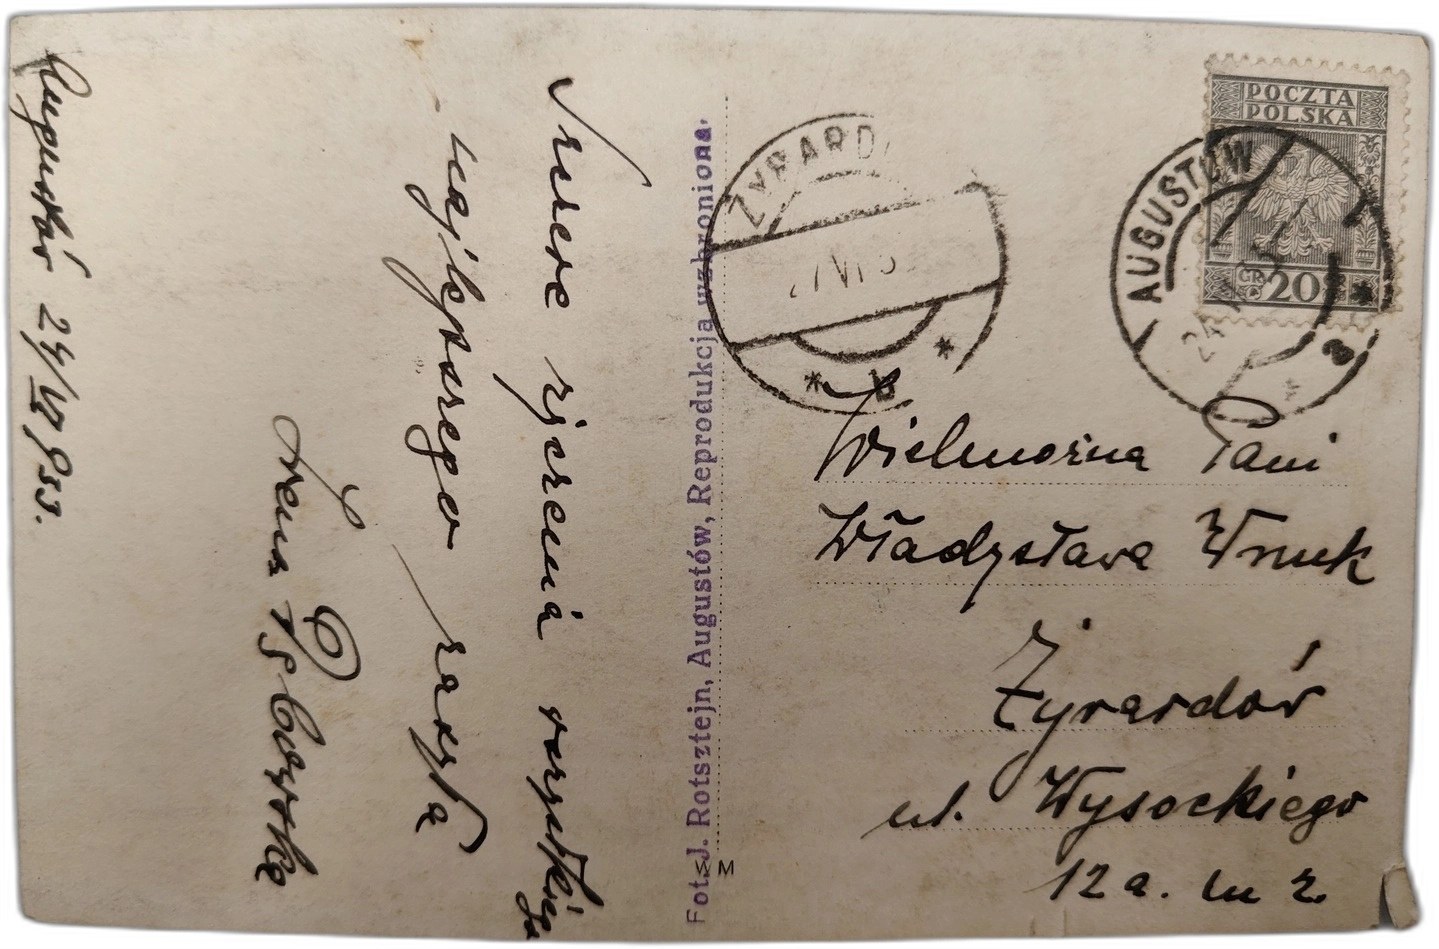 Augustów 24/VI 933.
Szczere życzenia wszystkiego
najlepszego zasyła
Fot. J. Rotsztejn, Augustów, Reprodukcja wzbroniona.
S M
ŻYRARD
VI 3
* b *
POCZTA
POLSKA
GR. 20
AUGUSTÓW
24 VI
* a *
Wielmożna Pani
Władysława Wnuk
Żyrardów
ul. Wysockiego
12 a. m 2.